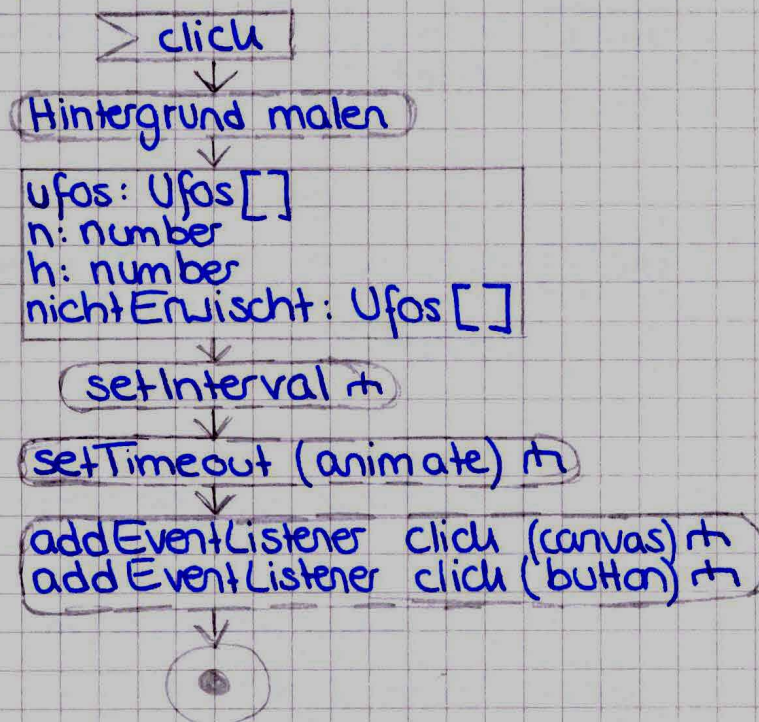 click
Hintergrund malen
ufos: Ufos[]
n: number
h: number
nichtErwischt: Ufos[]
setInterval
setTimeout (animate)
addEventListener click (canvas)
addEventListener click (button)